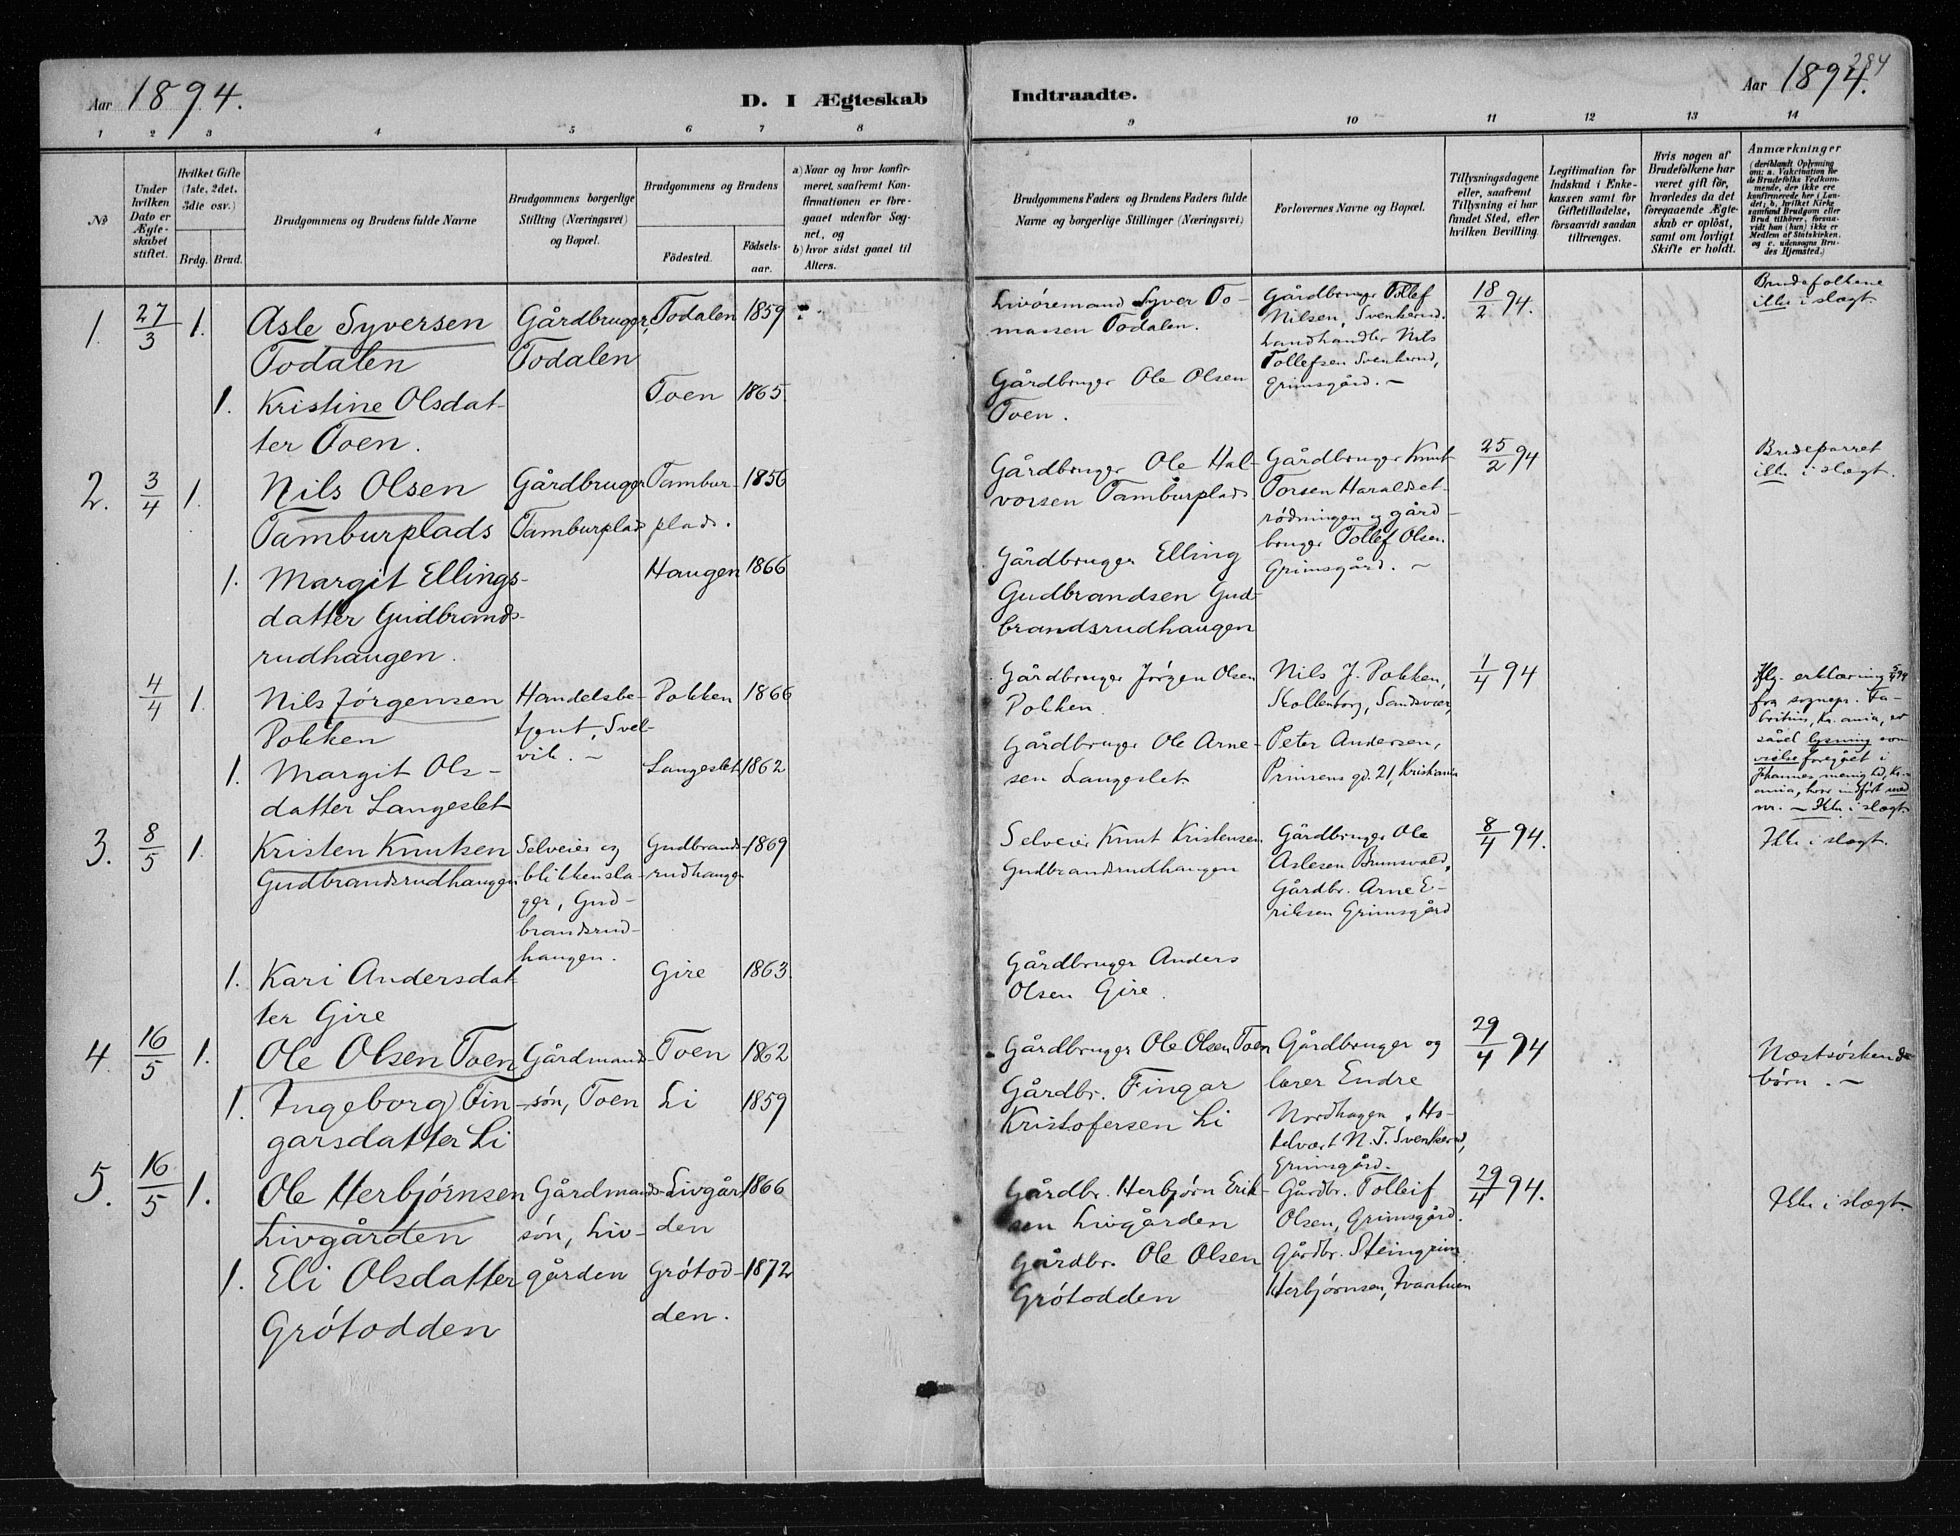 Aar 1894.
D. I Ægteskab Indtraadte.
Aar 1894.
284
1 2 3 4 5 6 7 8 9 10 11 12 13 14
No
Under hvilken Dato er Ægteskabet stiftet.
Hvilket Gifte (1ste, 2det, 3die osv.)
Brdg. Brud.
Brudgommens og Brudens fulde Navne
Brudgommens borgerlige Stilling (Næringsvei) og Bopæl.
Brudgommens og Brudens
Fødested.
Fødselsaar.
a) Naar og hvor konfirmeret, saafremt Konfirmationen er foregaaet udenfor Sognet, og
b) hvor sidst gaaet til Alters.
Brudgommens Faders og Brudens Faders fulde Navne og borgerlige Stillinger (Næringsvei)
Forlovernes Navne og Bopæl.
Tillysningsdagene eller, saafremt Tillysning ei har fundet Sted, efter hvilken Bevilling.
Legitimation for Indskud i Enkekassen samt for Giftetilladelse, forsaavidt saadan tiltrænges.
Hvis nogen af Brudefolkene har været gift før, hvorledes da det foregaaende Ægteskab er opløst, samt om lovligt Skifte er holdt.
Anmærkninger
(deriblandt Oplysning om: a. Vakcination for de Brudefolks Vedkommende, der ikke ere konfirmerede her i Landet; b. hvilket Kirkesamfund Brudgom eller Brud tilhører, forsaavidt han (hun) ikke er Medlem af Statskirken, og c. udensogns Brudes Hjemsted.)
1. 27/3 1. Asle Syversen
Todalen
Gårdbruger,
Todalen
Todalen 1859
Livøremand Syver To-
massen Todalen.
Gårdbruger Tollef
Nilsen, Svenkerud.
Landhandler Nils
Tollefsen Svenkerud,
Grimsgård. —
18/2 94.
Brudefolkene
ikke i slægt.
1. Kristine Olsdat-
ter Toen.
Toen 1865.
Gårdbruger Ole Olsen
Toen.
2. 3/4 1. Nils Olsen
Tamburplads
Gårdbruger
Tamburplads
Tambur-
plads.
1856
Gårdbruger Ole Hal-
vorsen Tamburplads
Gårdbruger Knut
Torsen Haraldset-
rødningen og gård-
bruger Tollef Olsen
Grimsgård. —
25/2 94
Brudeparret
ikke i slægt.
1. Margit Ellings-
datter Gudbrands-
rudhaugen.
Haugen 1866
Gårdbruger Elling
Gudbrandsen Gud-
brandsrudhaugen
4/4 1. Nils Jørgensen
Pokken
Handelsbe-
tjent, Svel-
vik. —
Pokken 1866
Gårdbruger Jørgen Olsen
Pokken.
Nils J. Pokken,
Skollenborg, Sandsvær,
Peter Andersen,
Prinsens gd. 21, Kristiania
1/4 94
Iflg. erklæring 5/4 94
fra sognepr. Fa-
britius, Kr.ania, er
såvel lysning som
vielse foregået i
Johannes menighd, Kr.-
ania, hvor indført med
nr. — Ikke i slægt.
1. Margit Ols-
datter Langeslet
Langeslet 1862
Gårdbruger Ole Arne-
sen Langeslet
3. 8/5 1. Kristen Knutsen
Gudbrandsrudhaugen
Selveier og
blikkensla-
ger, Gud-
brandsrud-
haugen.
Gudbrands-
rudhaugen
1869
Selveier Knut Kristensen
Gudbrandsrudhaugen
Gårdbruger Ole
Aslesen Brunsvold,
Gårdbr. Arne E-
riksen Grimsgård
8/4 94.
Ikke i slægt.
1. Kari Andersdat-
ter Gire
Gire 1863.
Gårdbruger Anders
Olsen Gire.
4. 16/5 1. Ole Olsen Toen
Gårdmands-
søn, Toen
Toen 1862
Gårdbruger Ole Olsen Toen
Gårdbruger og
lærer Endre
Nordhagen, Ho-
telvært N. T. Svenkerud,
Grimsgård.
29/4 94
Næstsøskende-
børn. —
1. Ingeborg Fin-
garsdatter Li
Li 1859
Gårdbr. Fingar
Kristofersen Li
5. 16/5 1. Ole Herbjørnsen
Livgården
Gårdmands-
søn, Liv-
gården
Livgår-
den
1866
Gårdbr. Herbjørn Erik-
sen Livgården
Gårdbr. Tolleif
Olsen, Grimsgård.
Gårdbr. Steingrim
Herbjørnsen,
29/4 94.
Ikke i slægt.
1. Eli Olsdatter
Grótodden
Grótod-
den.
1872
Gårdbr. Ole Olsen
Grótodden